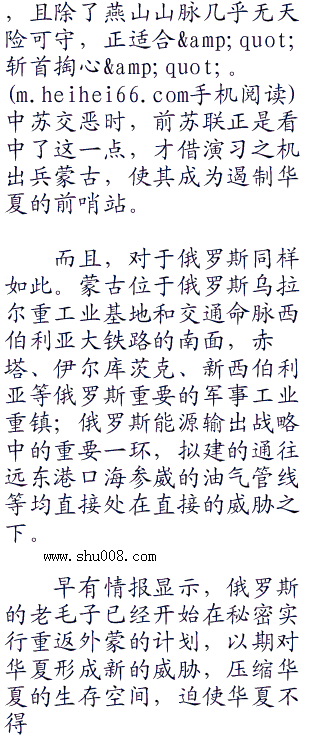 ，且除了燕山山脉几乎无天
险可守，正适合&amp;quot;
斩首掏心&amp;quot;。
(m.heihei66.com手机阅读)
中苏交恶时，前苏联正是看
中了这一点，才借演习之机
出兵蒙古，使其成为遏制华
夏的前哨站。
而且，对于俄罗斯同样
如此。蒙古位于俄罗斯乌拉
尔重工业基地和交通命脉西
伯利亚大铁路的南面，赤
塔、伊尔库茨克、新西伯利
亚等俄罗斯重要的军事工业
重镇；俄罗斯能源输出战略
中的重要一环，拟建的通往
远东港口海参崴的油气管线
等均直接处在直接的威胁之
下。
www.shu008.com
早有情报显示，俄罗斯
的老毛子已经开始在秘密实
行重返外蒙的计划，以期对
华夏形成新的威胁，压缩华
夏的生存空间，迫使华夏不
得